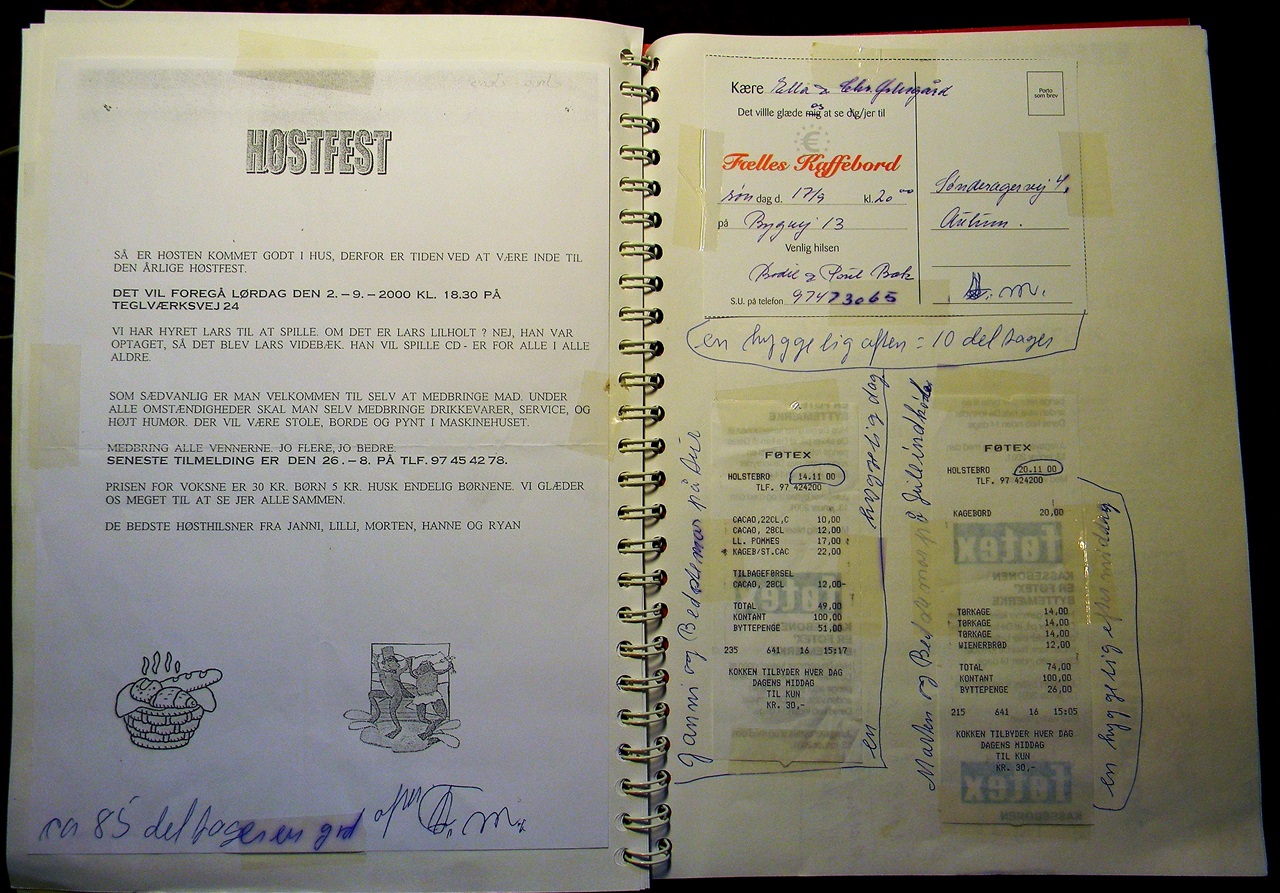 HØSTFEST
SÅ ER HØSTEN KOMMET GODT I HUS, DERFOR ER TIDEN VED AT VÆRE INDE TIL
DEN ÅRLIGE HØSTFEST.
DET VIL FOREGÅ LØRDAG DEN 2. – 9. – 2000 KL. 18.30 PÅ
TEGLVÆRKSVEJ 24
VI HAR HYRET LARS TIL AT SPILLE. OM DET ER LARS LILHOLT ? NEJ, HAN VAR
OPTAGET, SÅ DET BLEV LARS VIDEBÆK. HAN VIL SPILLE CD - ER FOR ALLE I ALLE
ALDRE.
SOM SÆDVANLIG ER MAN VELKOMMEN TIL SELV AT MEDBRINGE MAD. UNDER
ALLE OMSTÆNDIGHEDER SKAL MAN SELV MEDBRINGE DRIKKEVARER, SERVICE, OG
HØJT HUMØR. DER VIL VÆRE STOLE, BORDE OG PYNT I MASKINEHUSET.
MEDBRING ALLE VENNERNE. JO FLERE, JO BEDRE.
SENESTE TILMELDING ER DEN 26. – 8. PÅ TLF. 97 45 42 78.
PRISEN FOR VOKSNE ER 30 KR. BØRN 5 KR. HUSK ENDELIG BØRNENE. VI GLÆDER
OS MEGET TIL AT SE JER ALLE SAMMEN.
DE BEDSTE HØSTHILSNER FRA JANNI, LILLI, MORTEN, HANNE OG RYAN
ca 85 deltager en god aften
Kære Ella & Chr. Østergård
Porto
som brev
Det villle glæde mig os at se dig/jer til
€
Fælles Kaffebord
søn dag d. 17/9 kl. 20 00
på Bygvej 13
Venlig hilsen
Bodil & Poul Bak
S.U. på telefon 97473065
Sønderagervej 4,
Aulum.
en hyggelig aften = 10 deltager
Janni og Bedstemor på tur
en hyggelig dag
FØTEX
HOLSTEBRO 14.11 00
TLF. 97 424200
CACAO,22CL,C 10,00
CACAO, 28CL 12,00
LL. POMMES 17,00
KAGEB/ST.CAC 22,00
TILBAGEFØRSEL
CACAO, 28CL 12,00-
TOTAL 49,00
KONTANT 100,00
BYTTEPENGE 51,00
235 641 16 15:17
KOKKEN TILBYDER HVER DAG
DAGENS MIDDAG
TIL KUN
KR. 30,-
Morten og Bedstemor på Juleindkøb
en hyggelig eftermiddag
FØTEX
HOLSTEBRO 20.11 00
TLF. 97 424200
KAGEBORD 20,00
føtex
TØRKAGE 14,00
TØRKAGE 14,00
TØRKAGE 14,00
WIENERBRØD 12,00
TOTAL 74,00
KONTANT 100,00
BYTTEPENGE 26,00
215 641 16 15:05
KOKKEN TILBYDER HVER DAG
DAGENS MIDDAG
TIL KUN
KR. 30,-
føtex